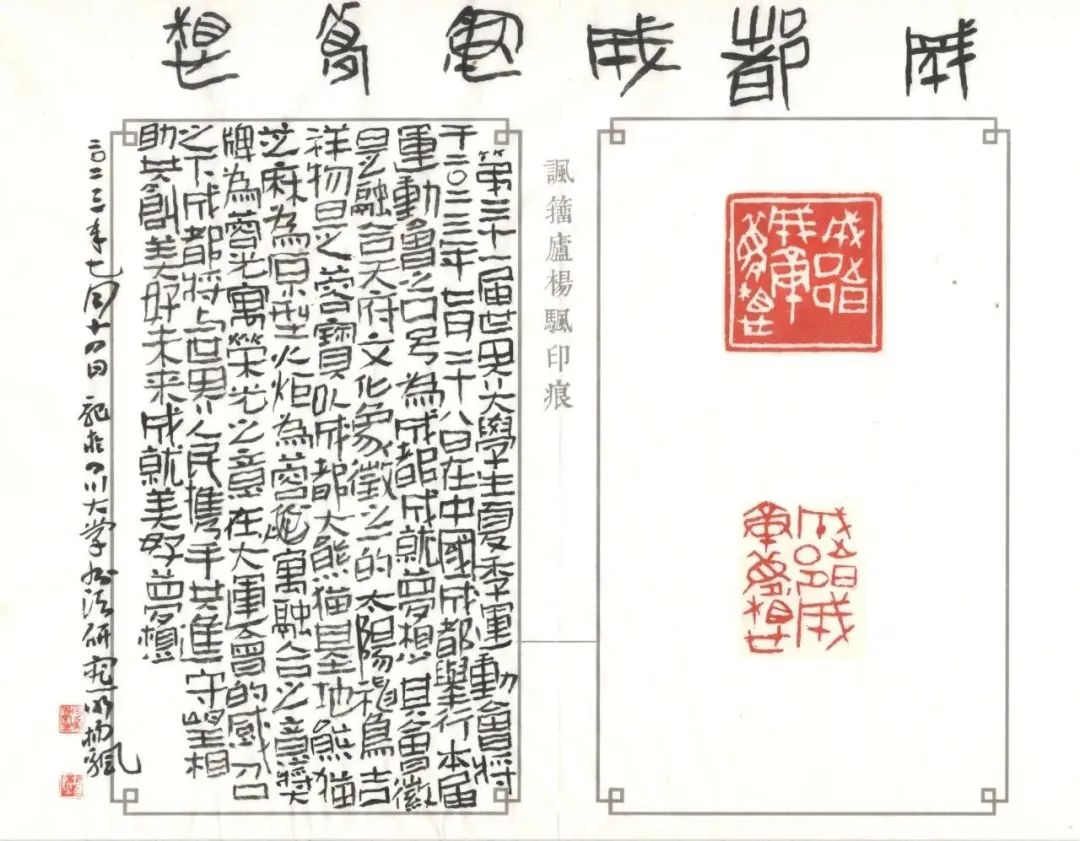 成都成就夢想
成都成就夢想
成都成就夢想
諷籀廬楊颿印痕
第三十一届世界大學生夏季運動會將
于二〇二三年七月二十八日在中國成都舉行本届
運動會之口号為成都成就夢想其會徽
是融合天府文化象徵之的太陽神鳥吉
祥物是之蓉寶以成都大熊猫基地熊猫
芝麻為原型火炬為蓉寓融合之意獎
牌為蓉光寓榮光之意在大運會的感召
之下成都將与世界人民攜手共進守望相
助共創美好未来成就美好夢想
二〇二三年七月十四日記於四川大学书法研究所楊颿